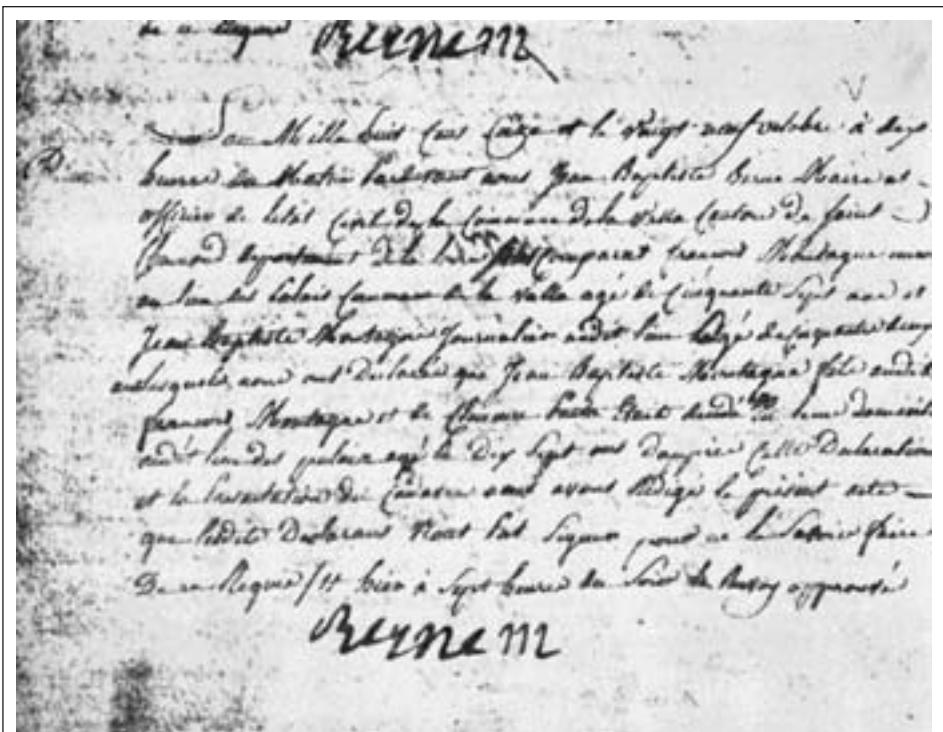 de ce Requis Reyne m
Lan Mille huit Cens Seize et le Vingt neuf octobre à deux
heures du Matin Pardevant nous Jean Baptiste Berne Maire et
officier de letat Civil de la Commune de la Valla Canton De Saint
Chamond departement De la Loire Comparat francois Montagne
au lieu des Palais Commune de la Valla agé de Cinquante Sept ans et
Jean Baptiste Montagne Journalier audit lieu agé de Cinquante deux
Lesquels nous ont Déclaré que Jean Baptiste Montagne fils audit
francois Montagne et de Clemence Etait decédé leur domicile
audit lieu des palais agé de Dix Sept ans Daprès Cette Declaration
et la Presentation du Cadavre nous avons Rédigé le présent acte
que lesdits Declarans N'ont Sut Signer pour ne le Savoir faire
De ce Requis / et hier à Sept heures du Soir approuvé
Reyne m